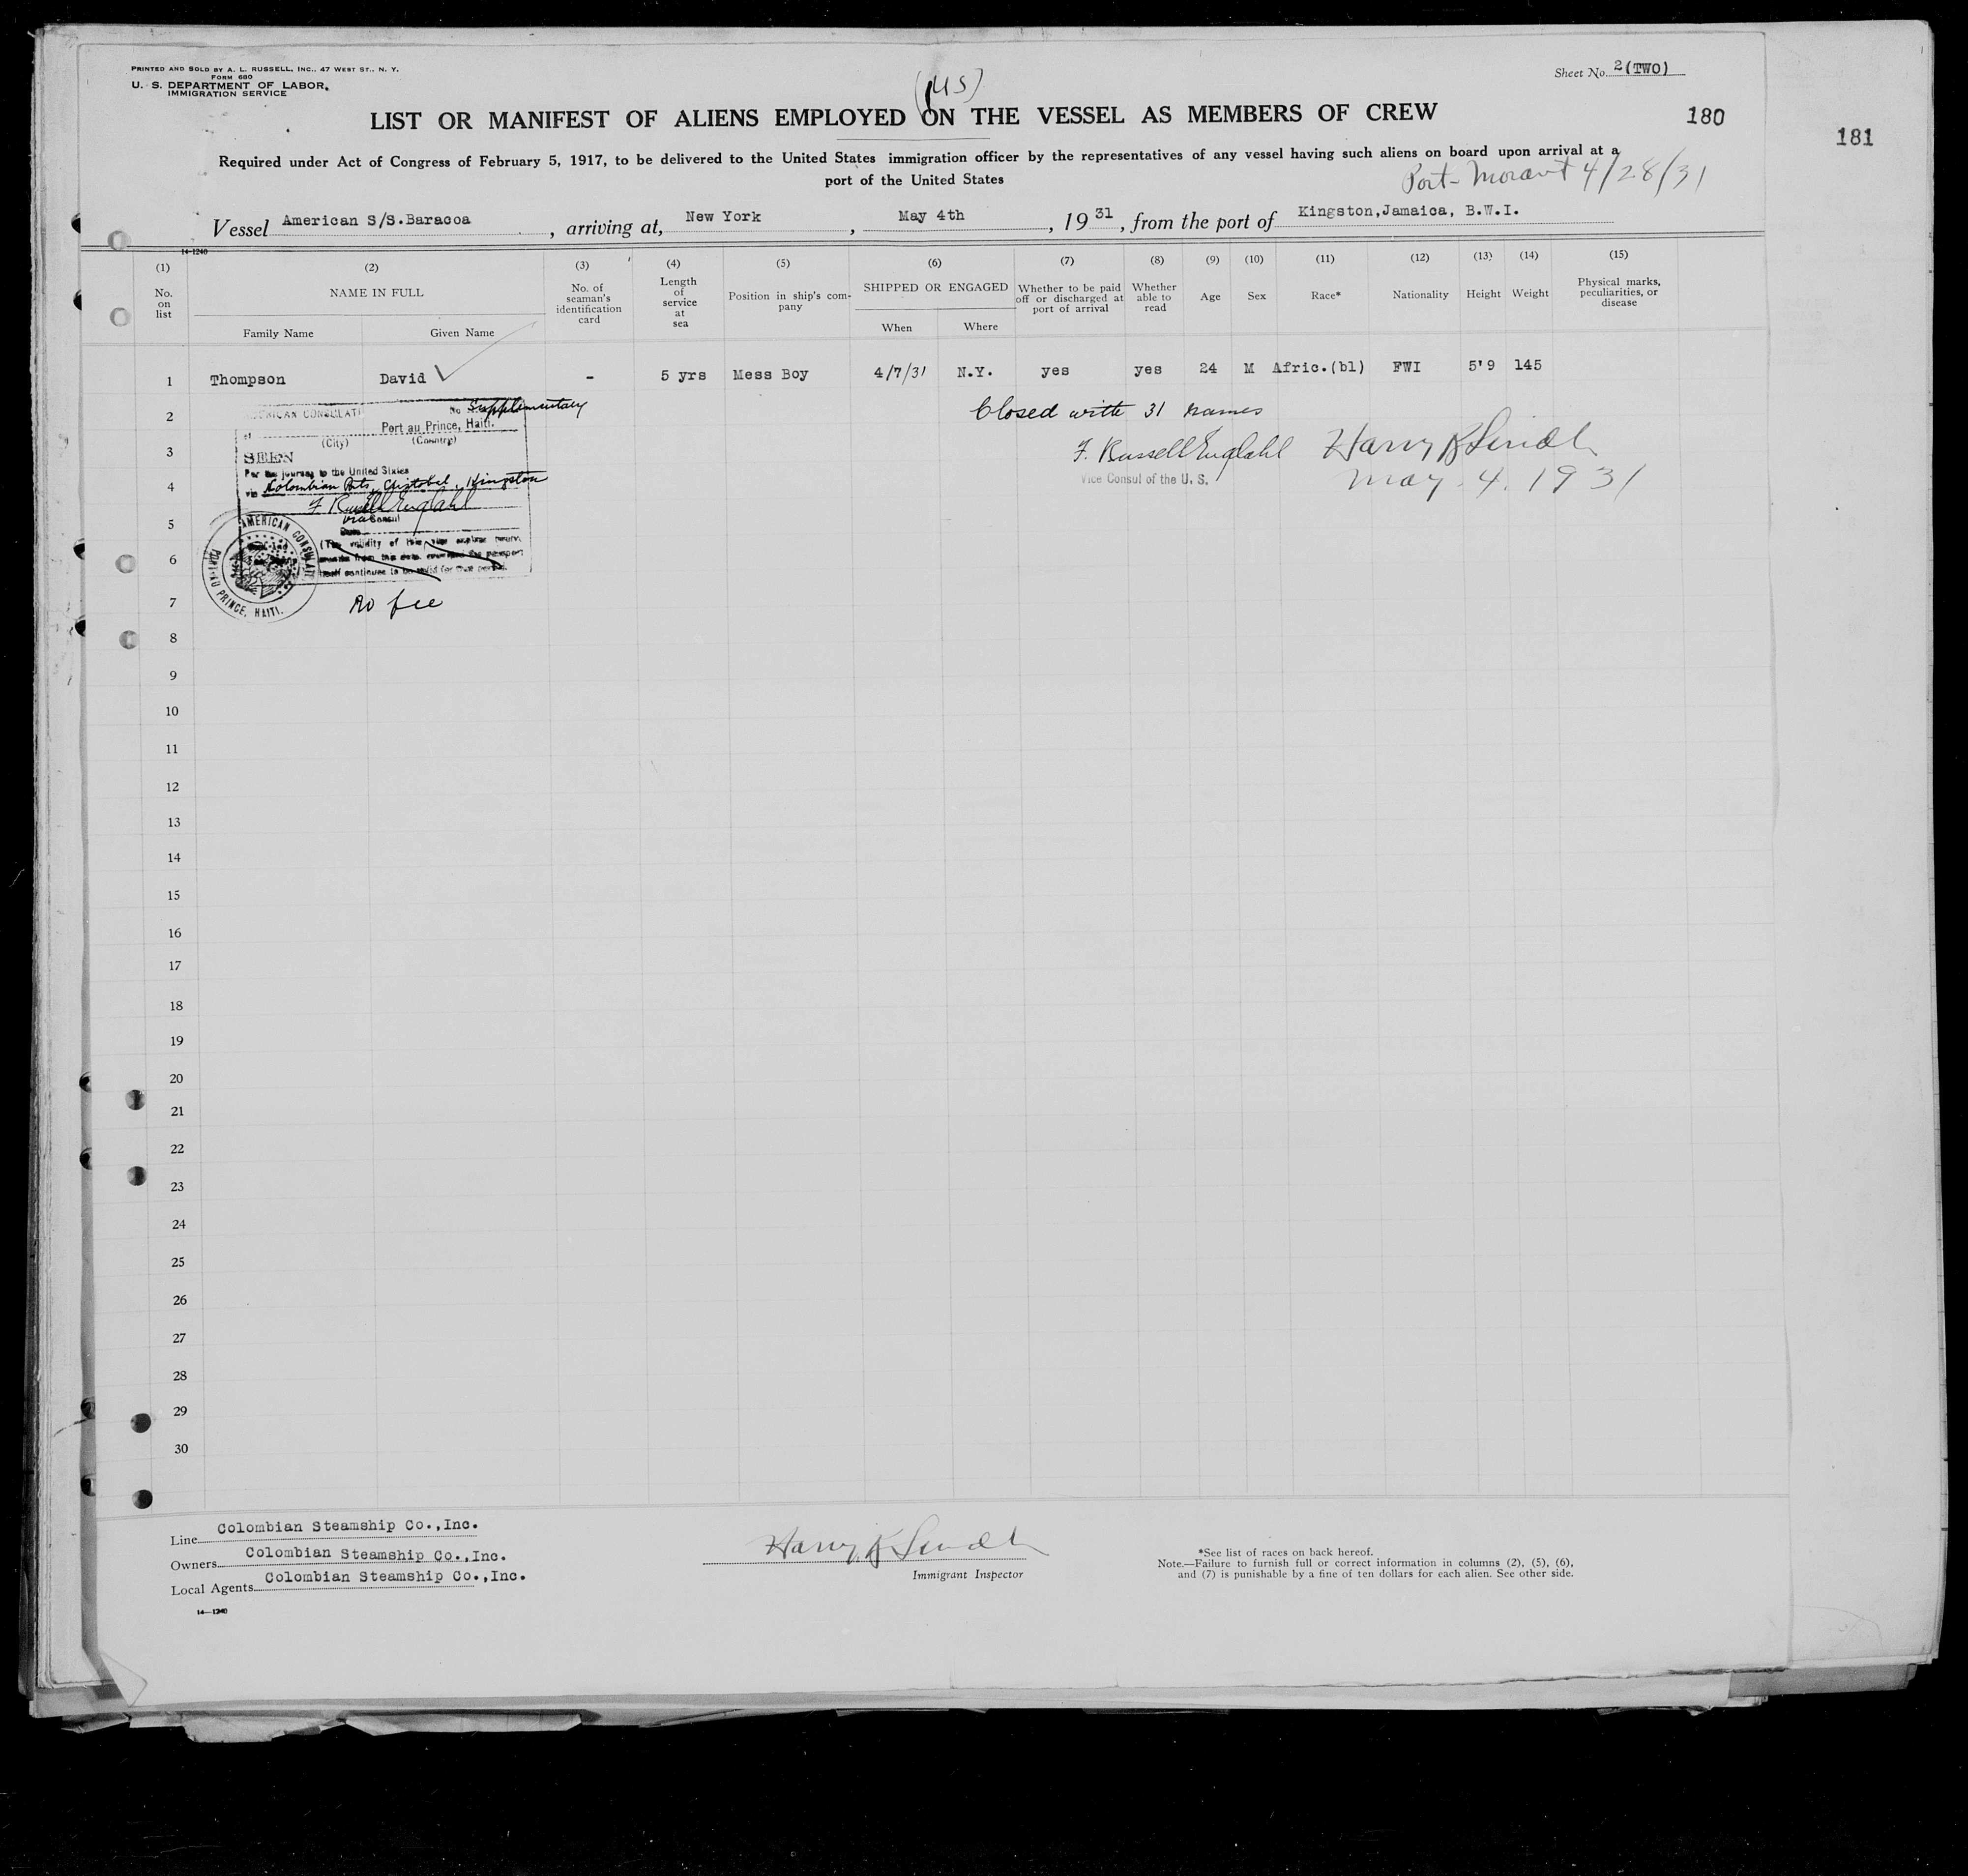 PRINTED AND SOLD BY A. L. RUSSELL, INC., 47 WEST ST., N. Y.
FORM 680
U. S. DEPARTMENT OF LABOR,
IMMIGRATION SERVICE
Sheet No. 2(TWO)
(US)
LIST OR MANIFEST OF ALIENS EMPLOYED ON THE VESSEL AS MEMBERS OF CREW
180
181
Required under Act of Congress of February 5, 1917, to be delivered to the United States immigration officer by the representatives of any vessel having such aliens on board upon arrival at a
port of the United States
Port Morant 4/28/31
Vessel American S/S.Baracoa, arriving at, New York, May 4th, 19 31, from the port of Kingston,Jamaica, B.W.I.
14-1240
(1) (2) (3) (4) (5) (6) (7) (8) (9) (10) (11) (12) (13) (14) (15)
No. on list
NAME IN FULL
Family Name
Given Name
No. of seaman's identification card
Length of service at sea
Position in ship's company
SHIPPED OR ENGAGED
When
Where
Whether to be paid off or discharged at port of arrival
Whether able to read
Age
Sex
Race*
Nationality
Height
Weight
Physical marks, peculiarities, or disease
1 Thompson David - 5 yrs Mess Boy 4/7/31 N.Y. yes yes 24 M Afric.(bl) FWI 5'9 145
2
3
4
5
6
7
8
9
10
11
12
13
14
15
16
17
18
19
20
21
22
23
24
25
26
27
28
29
30
AMERICAN CONSULATE
No Supplementary
at Port au Prince, Haiti.
(City) (Country)
SEEN
For the journey to the United States
via Colombian Ports, Cristobal, Kingston
F. Russell Englahl
Vice Consul
Date
(The validity of this visa expires twelve
months from this date, provided the passport
itself continues to be valid for that period.
AMERICAN CONSULATE
PORT-AU-PRINCE, HAITI.
No fee
Closed with 31 names
F. Russell Englahl
Vice Consul of the U. S.
May. 4. 1931
Line Colombian Steamship Co.,Inc.
Owners Colombian Steamship Co.,Inc.
Local Agents Colombian Steamship Co.,Inc.
14-1240
Immigrant Inspector
*See list of races on back hereof.
Note.—Failure to furnish full or correct information in columns (2), (5), (6),
and (7) is punishable by a fine of ten dollars for each alien. See other side.